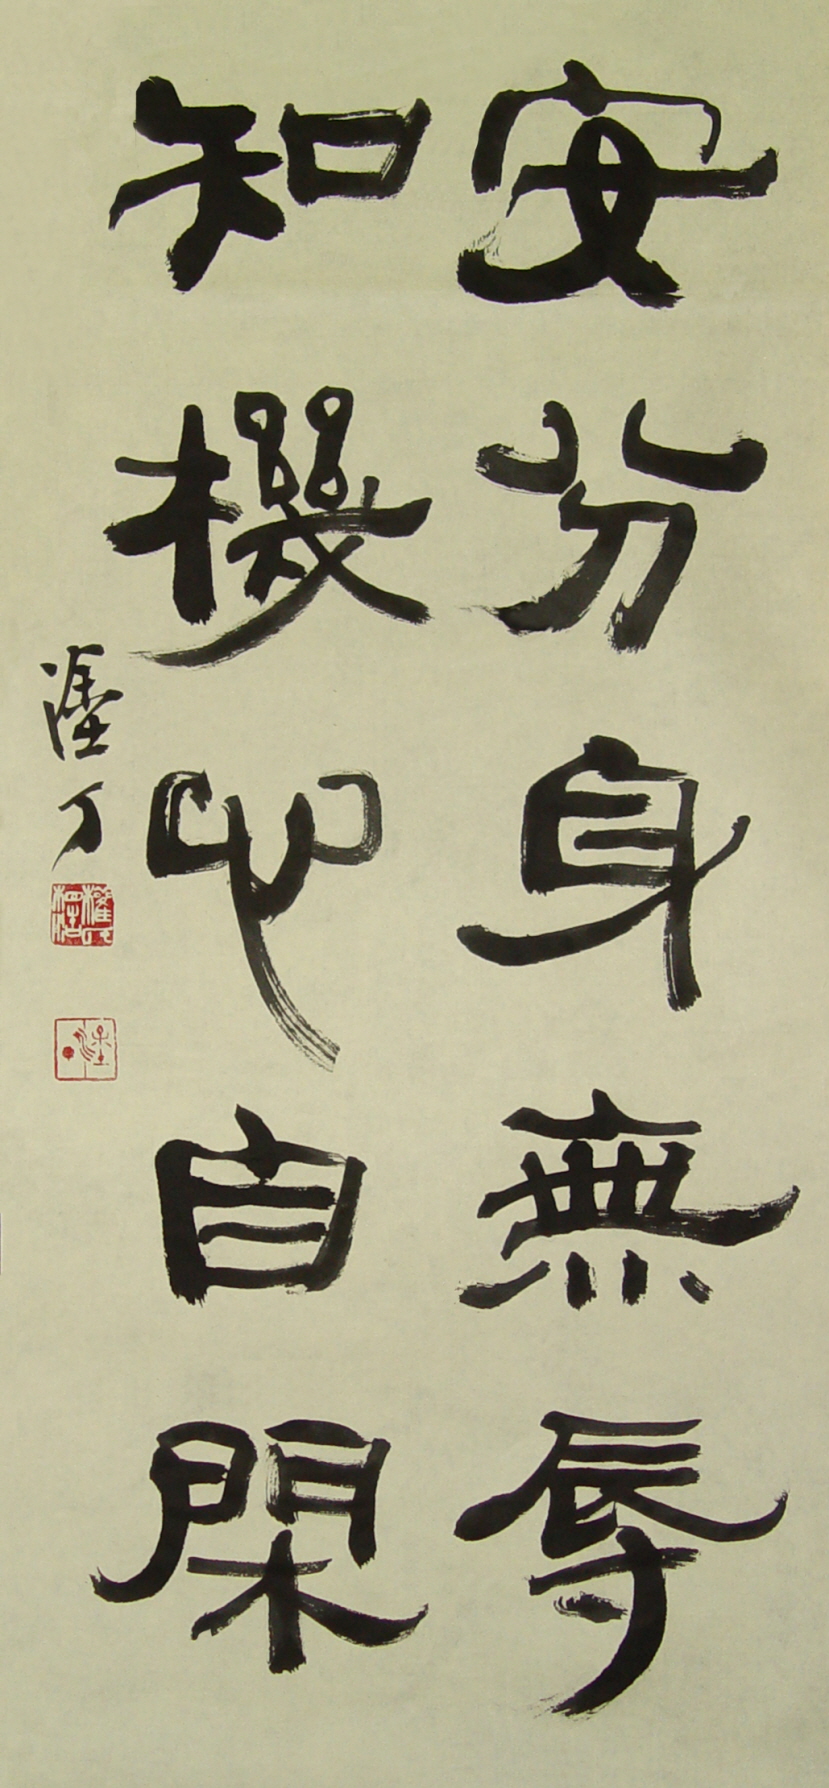 安分身無辱
知機心自閑